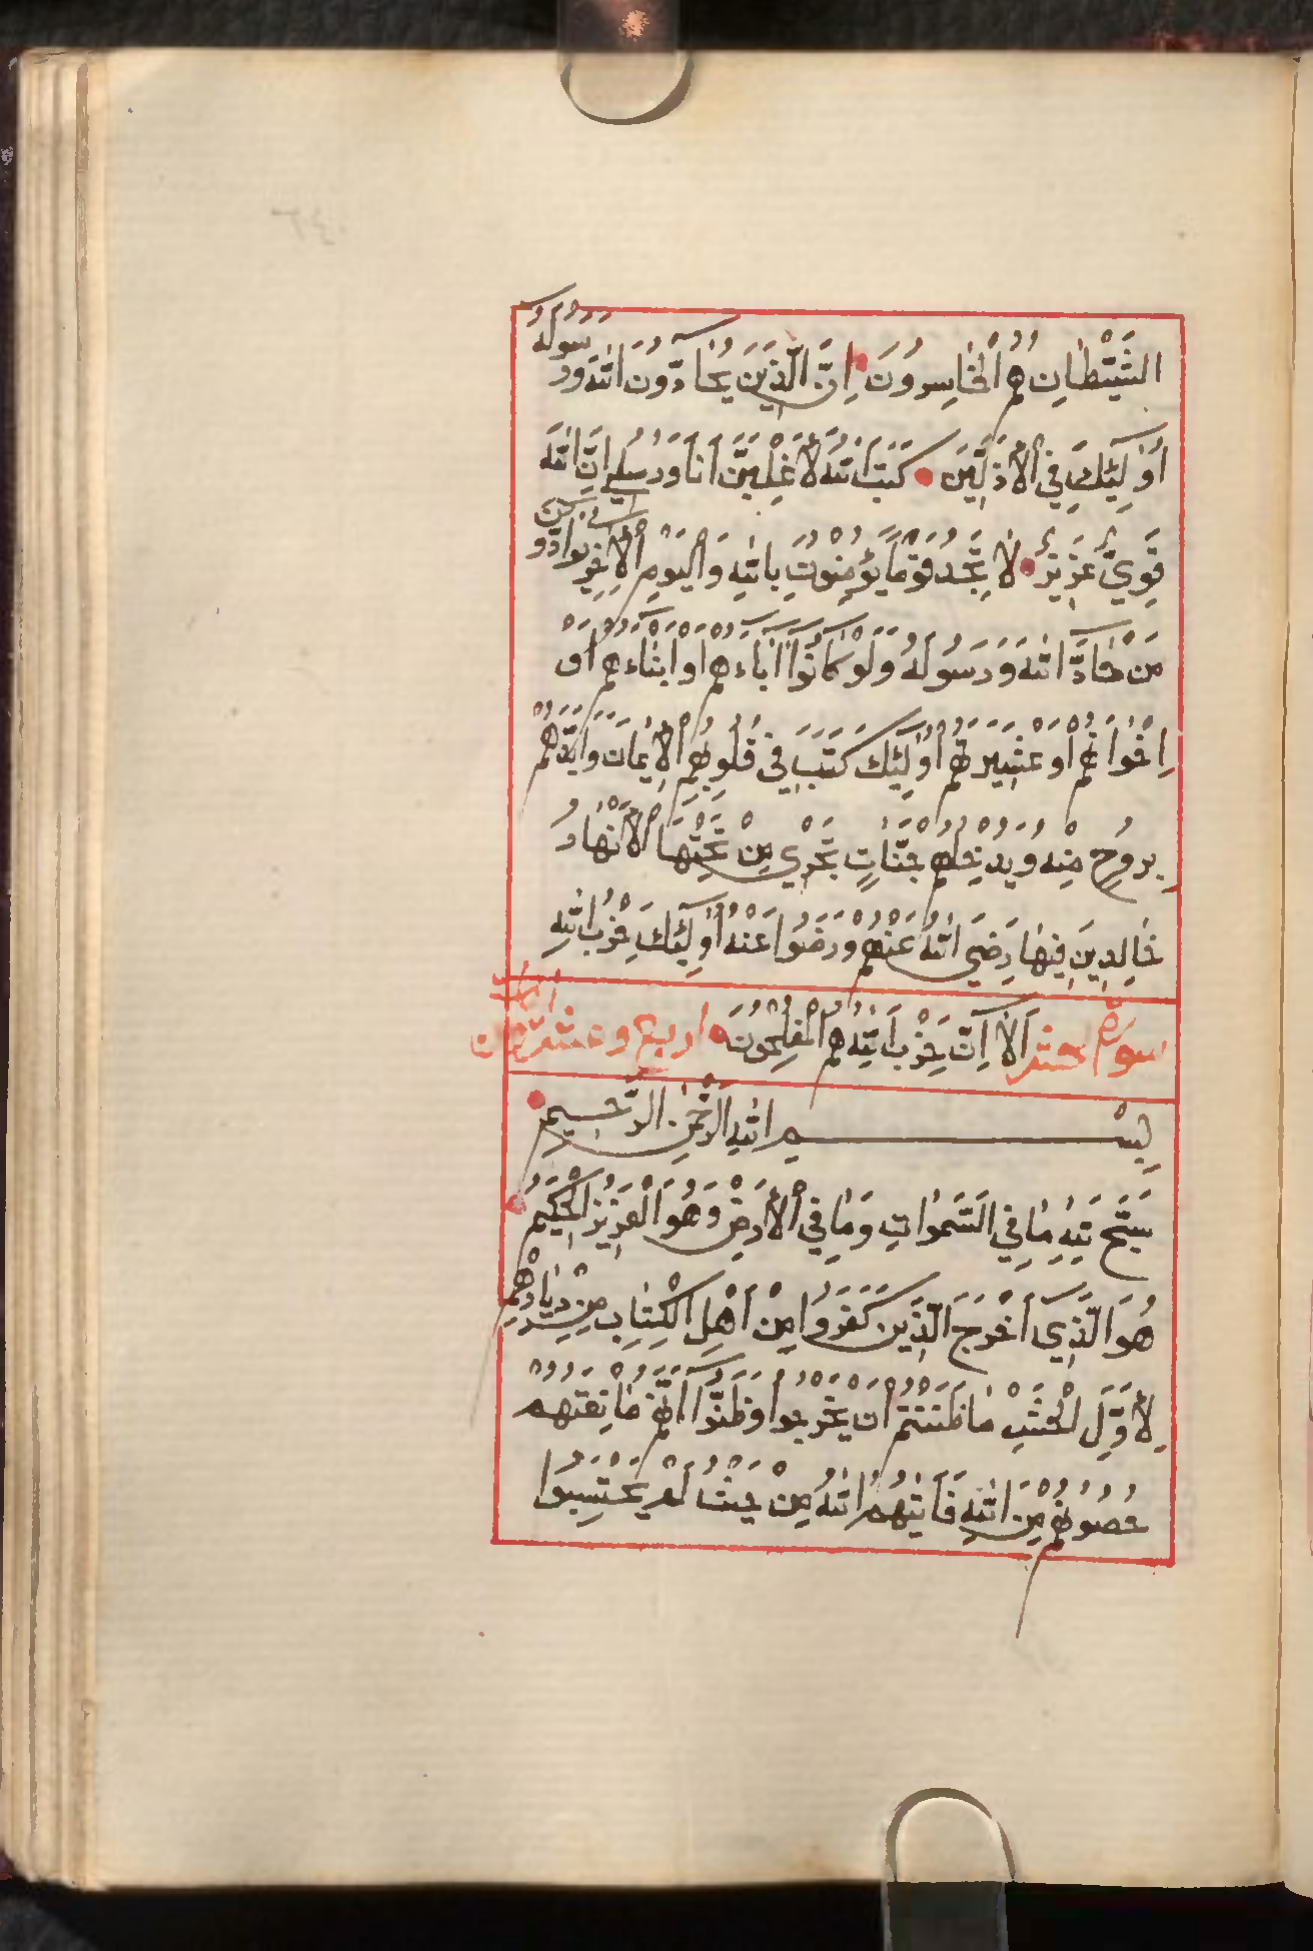 الشَّيْطَانِ هُمُ الْخَاسِرُونَ اِنَّ الَّذِينَ يُحَادُّونَ اللّٰهَ وَرَسُولَهُ
اُولٰئِكَ فِي الْاَذَلِّينَ كَتَبَ اللّٰهُ لَاَغْلِبَنَّ اَنَا وَرُسُلِي اِنَّ اللّٰهَ
قَوِيٌّ عَزِيزٌ لَا تَجِدُ قَوْمًا يُؤْمِنُونَ بِاللّٰهِ وَالْيَوْمِ الْاٰخِرِ يُوَادُّونَ
مَنْ حَادَّ اللّٰهَ وَرَسُولَهُ وَلَوْ كَانُوا اٰبَاءَهُمْ اَوْ اَبْنَاءَهُمْ اَوْ
اِخْوَانَهُمْ اَوْ عَشِيرَتَهُمْ اُولٰئِكَ كَتَبَ فِي قُلُوبِهِمُ الْاِيمَانَ وَاَيَّدَهُمْ
بِرُوحٍ مِنْهُ وَيُدْخِلُهُمْ جَنَّاتٍ تَجْرِي مِنْ تَحْتِهَا الْاَنْهَارُ
خَالِدِينَ فِيهَا رَضِيَ اللّٰهُ عَنْهُمْ وَرَضُوا عَنْهُ اُولٰئِكَ حِزْبُ اللّٰهِ
سورة حشر اَلَا اِنَّ حِزْبَ اللّٰهِ هُمُ الْمُفْلِحُونَ اربع وعشرون
بِسْمِ اللّٰهِ الرَّحْمٰنِ الرَّحِيمِ
سَبَّحَ لِلّٰهِ مَا فِي السَّمٰوَاتِ وَمَا فِي الْاَرْضِ وَهُوَ الْعَزِيزُ الْحَكِيمُ
هُوَ الَّذِي اَخْرَجَ الَّذِينَ كَفَرُوا مِنْ اَهْلِ الْكِتَابِ مِنْ دِيَارِهِمْ
لِاَوَّلِ الْحَشْرِ مَا ظَنَنْتُمْ اَنْ يَخْرُجُوا وَظَنُّوا اَنَّهُمْ مَانِعَتُهُمْ
حُصُونُهُمْ مِنَ اللّٰهِ فَاَتٰيهُمُ اللّٰهُ مِنْ حَيْثُ لَمْ يَحْتَسِبُوا